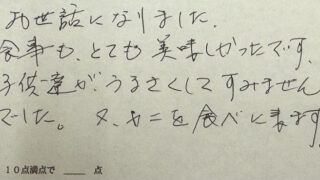 お世話になりました.
食事も、とても美味しかったです
子供達が、うるさくしてすみません
でした。 又、カニを食べに来ます
10点満点で ____ 点